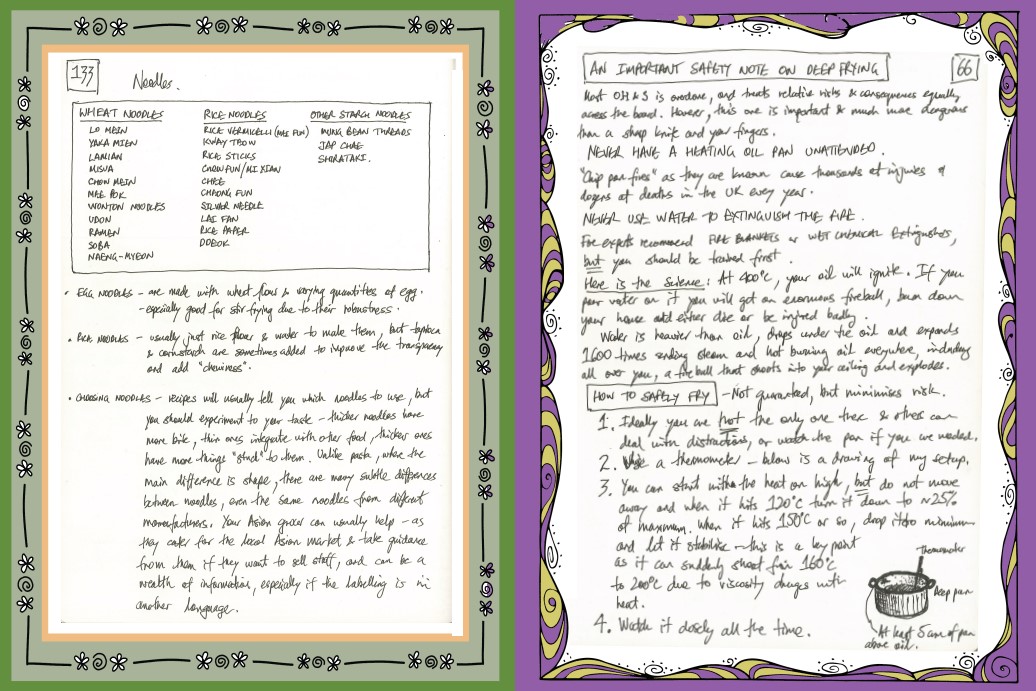 133
Noodles.
WHEAT NOODLES
LO MEIN
YAKA MIEN
LAMIAN
MISUA
CHOW MEIN
MEE POK
WONTON NOODLES
UDON
RAMEN
SOBA
NAENG-MYEON
RICE NOODLES
RICE VERMICELLI (MEE FUN)
KWAY TEOW
RICE STICKS
CHOW FUN/MI XIAN
CHEE
CHAONG FUN
SILVER NEEDLE
LAI FAN
RICE PAPER
DDEOK
OTHER STARCH NOODLES
MUNG BEAN THREADS
JAP CHAE
SHIRATAKI.
• EGG NOODLES - are made with wheat flour & varying quantities of egg.
- especially good for stir frying due to their robustness.
• RICE NOODLES - usually just rice flour & water to make them, but tapioca
& cornstarch are sometimes added to improve the transparency
and add "chewiness".
• CHOOSING NOODLES - recipes will usually tell you which noodles to use, but
you should experiment to your taste - thicker noodles have
more bite, thin ones integrate with other food, thicker ones
have more things "stuck" to them. Unlike pasta, where the
main difference is shape, there are many subtle differences
between noodles, even the same noodles from different
manufacturers. Your Asian grocer can usually help - as
they cater for the local Asian market & take guidance
from them if they want to sell stuff, and can be a
wealth of information, especially if the labelling is in
another language.
AN IMPORTANT SAFETY NOTE ON DEEP FRYING
66
Most OH&S is overdone, and treats relative risks & consequences equally
across the board. However, this one is important & much more dangerous
than a sharp knife and your fingers.
NEVER HAVE A HEATING OIL PAN UNATTENDED.
"Chip pan fires" as they are known cause thousands of injuries &
dozens of deaths in the UK every year.
NEVER USE WATER TO EXTINGUISH THE FIRE.
Fire experts recommend FIRE BLANKETS or WET CHEMICAL Extinguishers,
but you should be trained first.
Here is the Science: At 400°C, your oil will ignite. If you
pour water on it you will get an enormous fireball, burn down
your house and either die or be injured badly.
Water is heavier than oil, drops under the oil and expands
1600 times sending steam and hot burning oil everywhere, including
all over you, a fireball that shoots into your ceiling and explodes.
HOW TO SAFELY FRY - Not guaranteed, but minimises risk.
1. Ideally you are not the only one there & others can
deal with distractions, or watch the pan if you are needed.
2. Use a thermometer - below is a drawing of my setup.
3. You can start with the heat on high, but do not move
away and when it hits 120°C turn it down to ~25%
of maximum. When it hits 150°C or so, drop it to minimum
and let it stabilise - this is a key point
as it can suddenly shoot from 160°C
to 200°C due to viscosity changes with
heat.
4. Watch it closely all the time.
Thermometer
Deep pan
At least 5cm of pan
above oil.